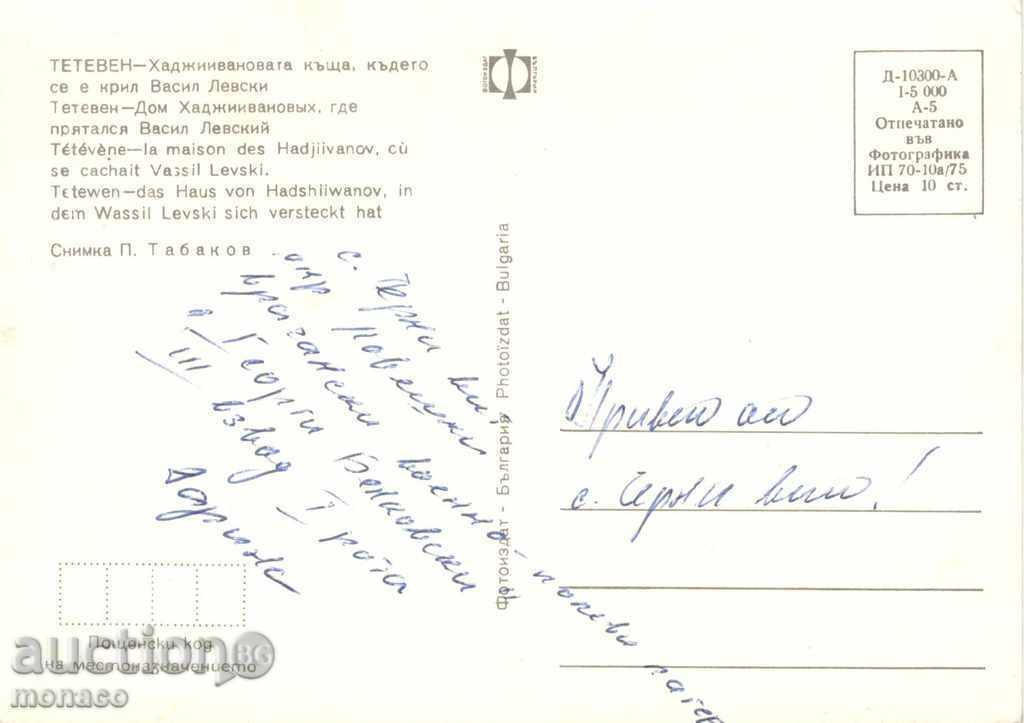 ТЕТЕВЕН—Хаджиивановата къща, където
се е крил Васил Левски
Тетевен—Дом Хаджиивановых, где
прятался Васил Левский
Tétévène—la maison des Hadjiivanov, où
se cachait Vassil Levski.
Tetewen—das Haus von Hadshiiwanov, in
dem Wassil Levski sich versteckt hat
Снимка П. Табаков
ФОТОИЗДАТ
БЪЛГАРИЯ
Д-10300-А
1-5 000
А-5
Отпечатано
във
Фотографика
ИП 70-10а/75
Цена 10 ст.
Фотоиздат - България Photoïzdat - Bulgaria
с. Черни Вит
окр. Ловешки
военно
в "Георги Бенковски"
III взвод I рота
Привет от
с. Черни вит!
Пощенски код
на местоназначението
auction BG
monaco